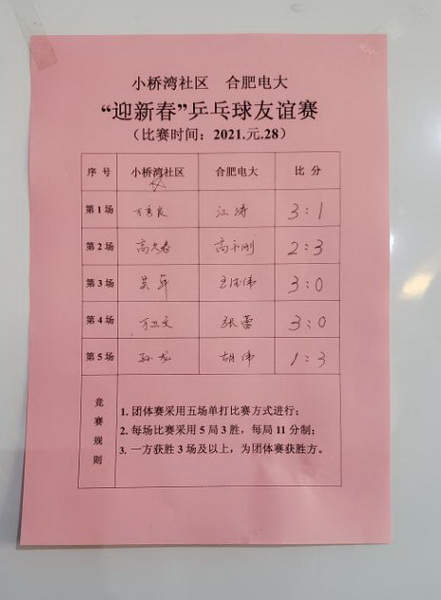 小桥湾社区 合肥电大
“迎新春”乒乓球友谊赛
（比赛时间：2021.元.28）
序号 小桥湾社区 合肥电大 比分
第1场 江涛 3:1
第2场 高永刚 2:3
第3场 吴军 3:0
第4场 张蕾 3:0
第5场 孙龙 胡伟 1:3
竞赛规则
1. 团体赛采用五场单打比赛方式进行；
2. 每场比赛采用 5 局 3 胜，每局 11 分制；
3. 一方获胜 3 场及以上，为团体赛获胜方。